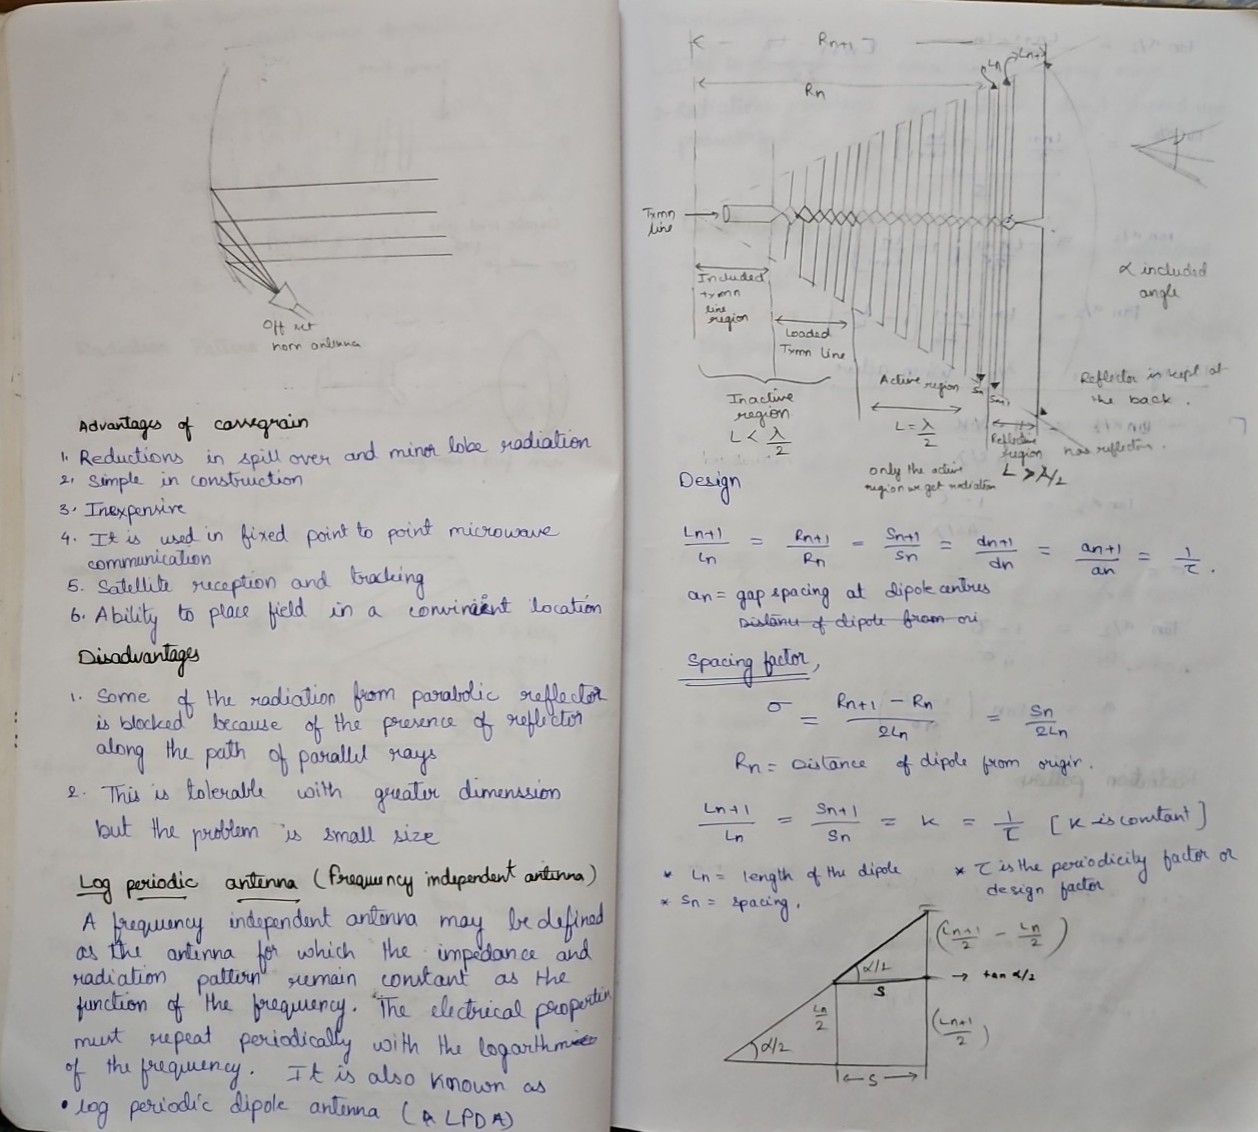 Off set
horn antenna
Advantages of cassegrain
1. Reductions in spill over and minor lobe radiation
2. Simple in construction
3. Inexpensive
4. It is used in fixed point to point microwave
communication
5. Satellite reception and tracking
6. Ability to place field in a convinient location
Disadvantages
1. Some of the radiation from parabolic reflector
is blocked because of the presence of reflector
along the path of parallel rays
2. This is tolerable with greater dimenssion
but the problem is small size
Log periodic antenna (Frequency independent antenna)
A frequency independent antenna may be defined
as the antenna for which the impedance and
radiation pattern remain constant as the
function of the frequency. The electrical properties
must repeat periodically with the logarthmic
of the frequency. It is also known as
• log periodic dipole antenna (A LPDA)
Rn+1
Ln Ln+1
Rn
Txmn
line
Included
txmn
line
region
Loaded
Txmn line
α included
angle
Inactive
region
L < λ/2
Active region
L = λ/2
only the active
region we get radiation
Sn
Sn+1
Reflective
region
L > λ/2
has reflector.
Reflector is kept at
the back.
Design
Ln+1/Ln = Rn+1/Rn = Sn+1/Sn = dn+1/dn = an+1/an = 1/τ.
an = gap spacing at dipole centres
Distance of dipole from ori
Spacing factor,
σ = Rn+1 - Rn/2Ln = Sn/2Ln
Rn = Distance of dipole from origin.
Ln+1/Ln = Sn+1/Sn = K = 1/τ [K is constant]
* Ln = length of the dipole
* τ is the periodicity factor or
design factor
* Sn = spacing.
(Ln+1/2 - Ln/2)
α/2
→ tan α/2
S
Ln/2
(Ln+1/2)
α/2
S